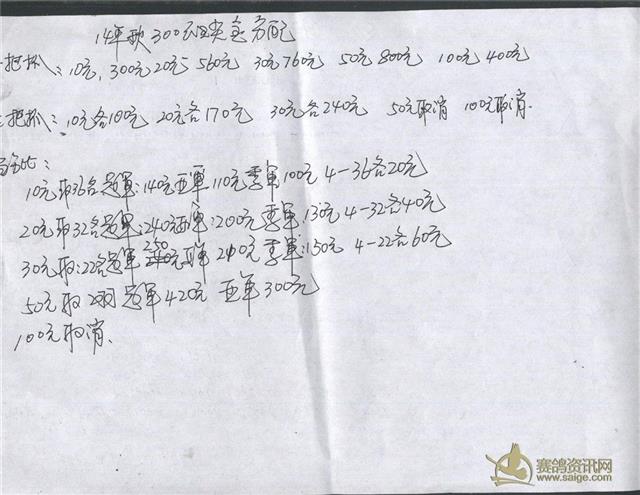 14年秋300公里奖金分配
一把抓:10元,300元 20元 560元 30元 760元 50元 800元 100元 400元
把抓:10元各100元 20元各170元 30元各240元 50元取消 100元取消.
百分比:
10元取36名冠军:140元 亚军110元 季军100元 4-36各20元
20元取32名冠军:240元 亚军:200元 季军:130元 4-32各40元
30元取:22名冠军 250元 亚军 200元 季军:150元 4-22各60元
50元取2羽冠军420元 亚军300元
100元取消.
赛鸽资讯网
www.saige.com